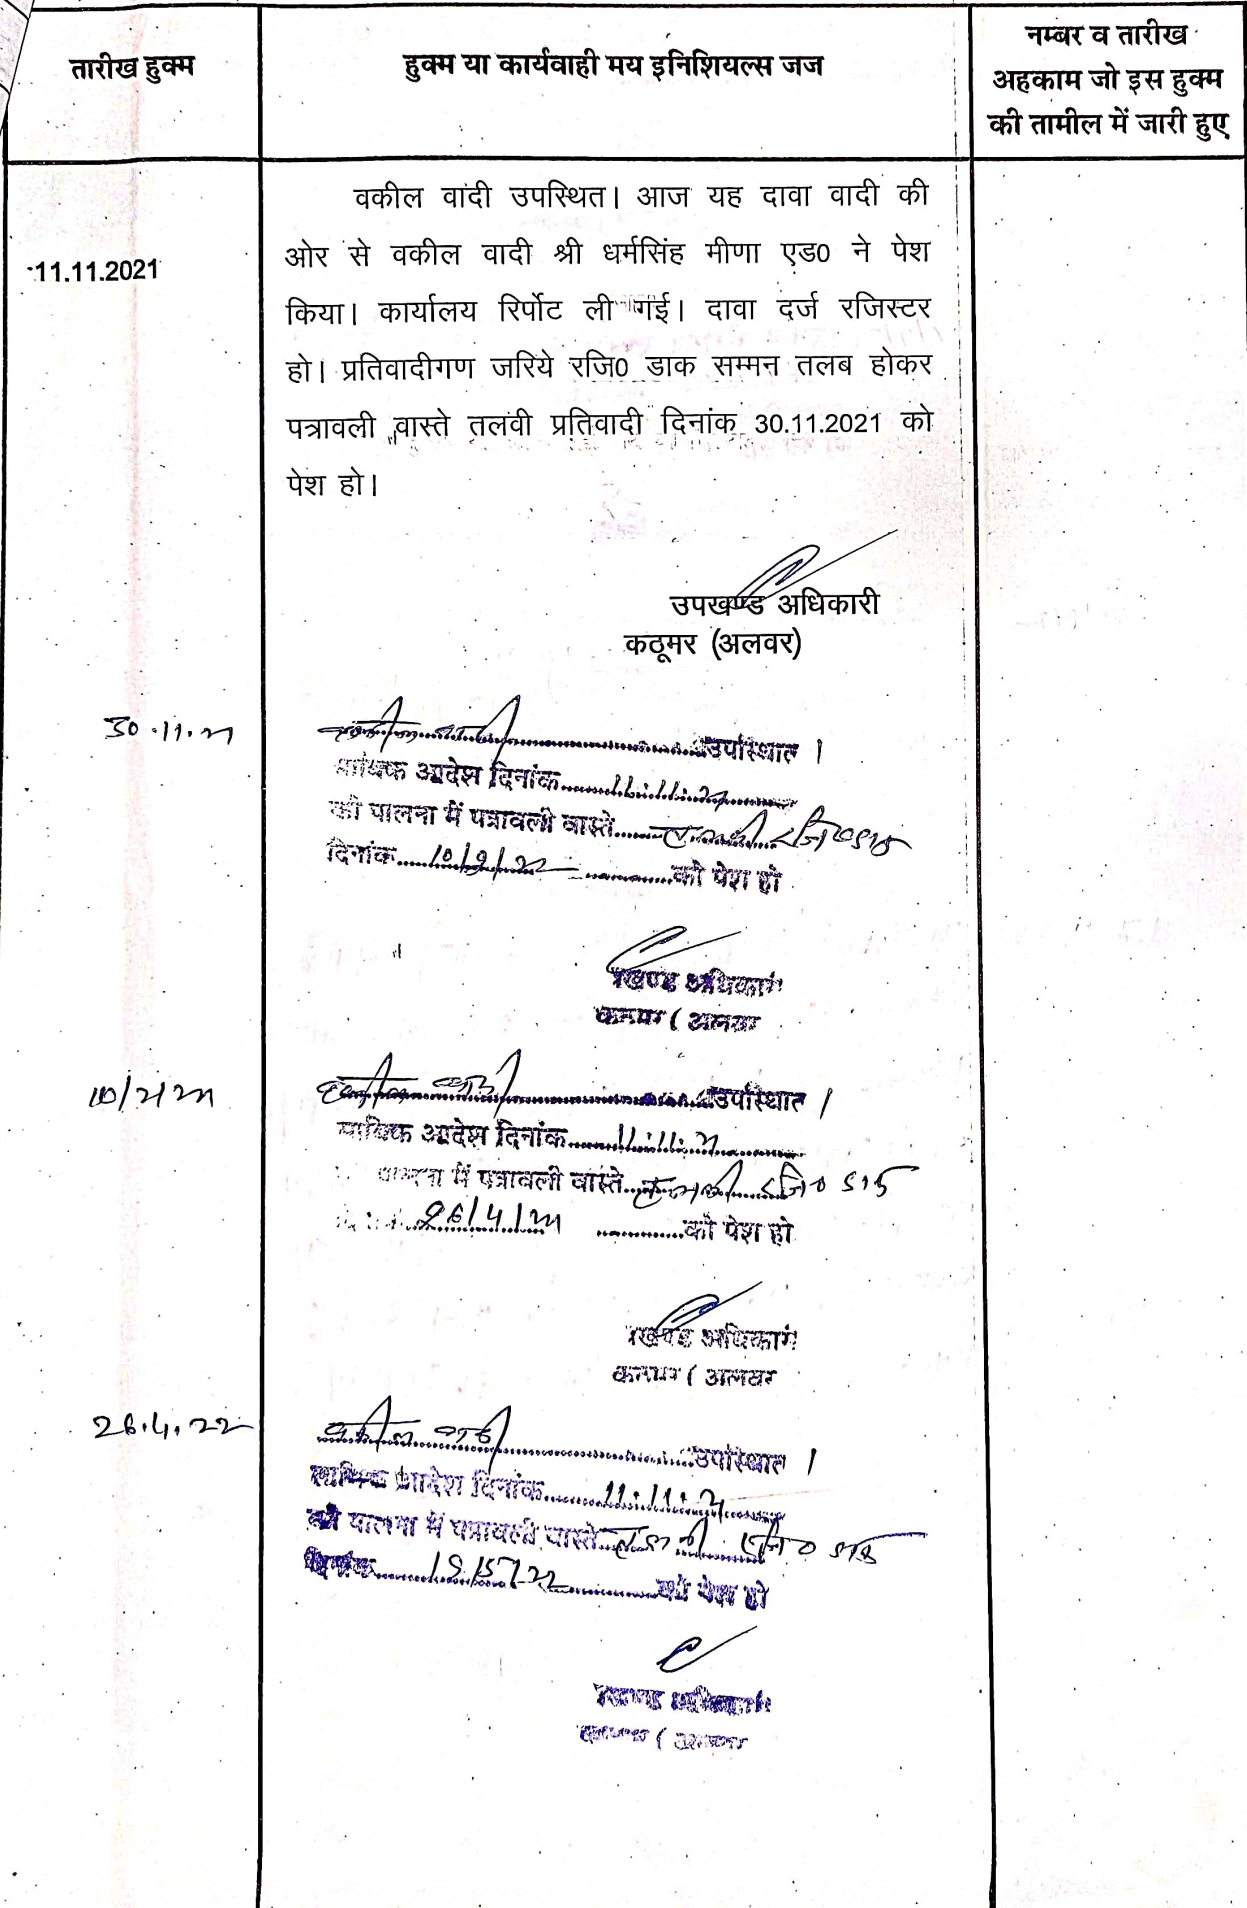 तारीख हुक्म
हुक्म या कार्यवाही मय इनिशियल्स जज
नम्बर व तारीख
अहकाम जो इस हुक्म
की तामील में जारी हुए
11.11.2021
वकील वादी उपस्थित। आज यह दावा वादी की
ओर से वकील वादी श्री धर्मसिंह मीणा एड0 ने पेश
किया। कार्यालय रिर्पोट ली गई। दावा दर्ज रजिस्टर
हो। प्रतिवादीगण जरिये रजि0 डाक सम्मन तलब होकर
पत्रावली वास्ते तलवी प्रतिवादी दिनांक 30.11.2021 को
पेश हो।
उपखण्ड अधिकारी
कठूमर (अलवर)
30.11.21
वकील वादी उपस्थित।
आदेश दिनांक 11.11.21
की पालना में पत्रावली वास्ते रजि0 डाक
दिनांक 10/2/22 को पेश हो
खण्ड अधिकारी
( अलवर
10/2/22
वकील वादी उपस्थित।
आदेश दिनांक 11.11.21
पालना में पत्रावली वास्ते रजि0 डाक
26/4/22 को पेश हो
खण्ड अधिकारी
( अलवर
26.4.22
वकील वादी उपस्थित।
आदेश दिनांक 11.11.21
की पालना में पत्रावली वास्ते रजि0 डाक
दिनांक को पेश हो